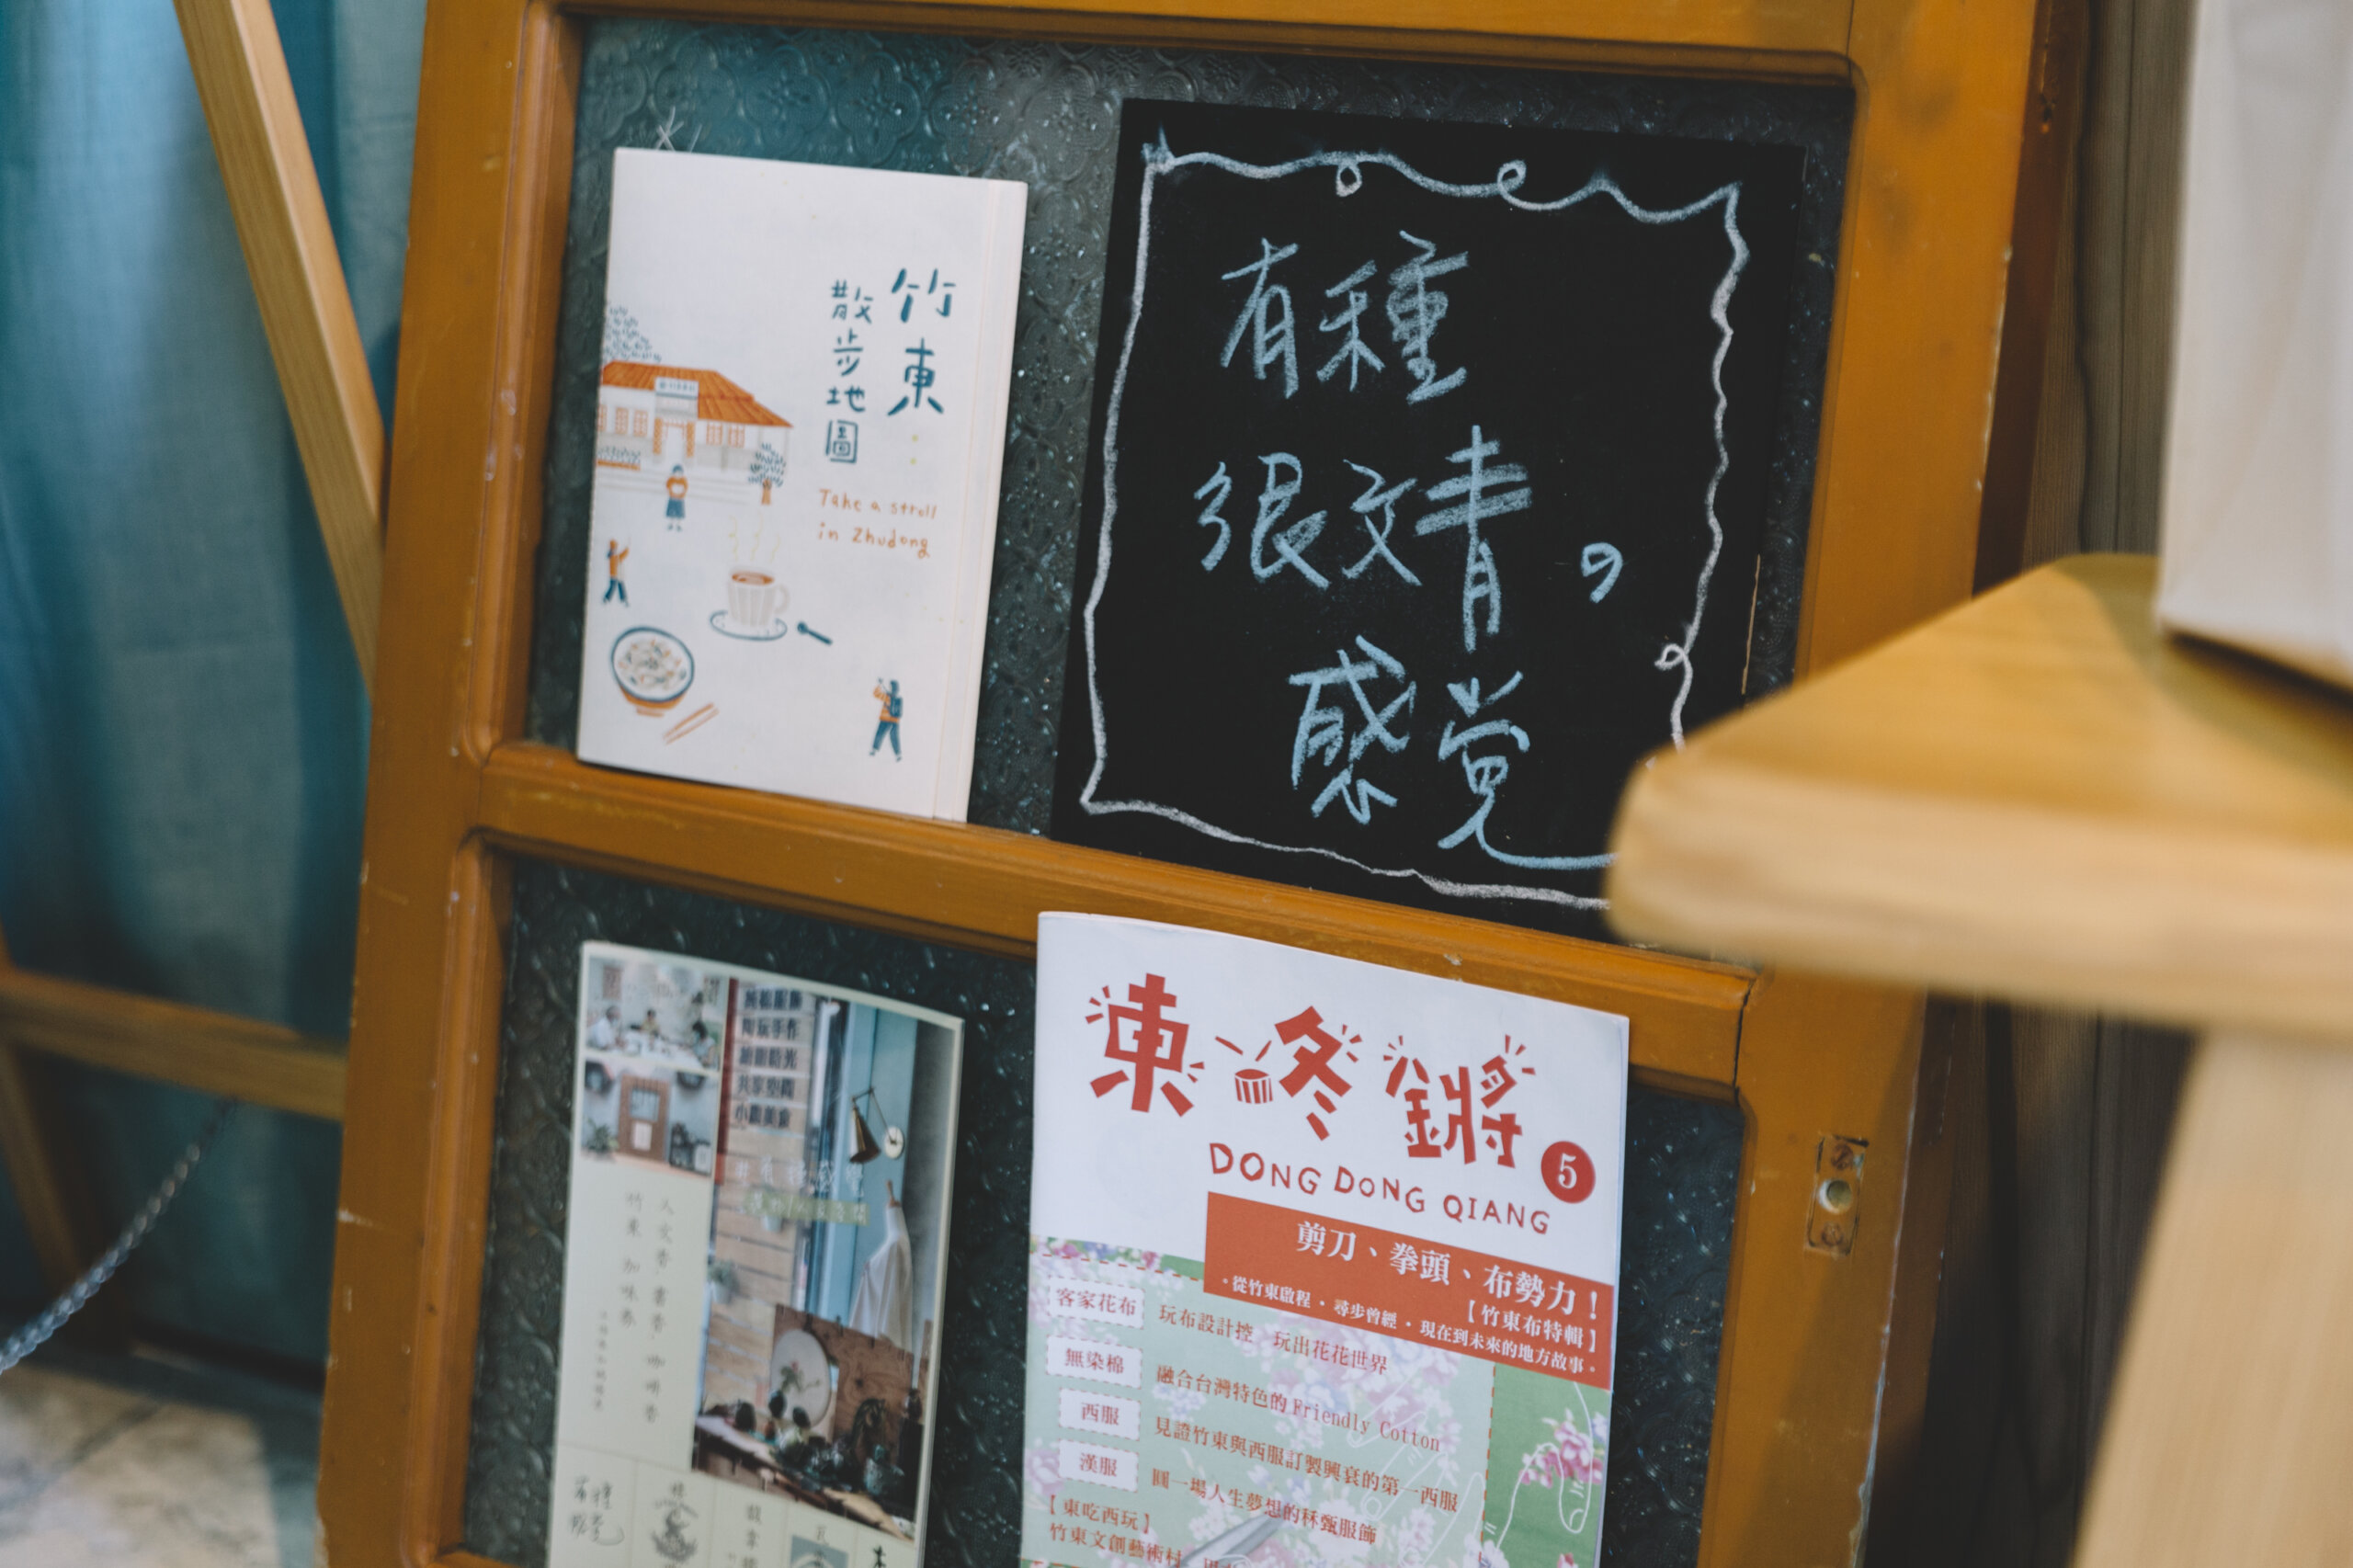 竹東
散步地圖
Take a stroll
in Zhudong
有種
很文青。
感覚
陶玩手作
共家空間
小鎮美食
人文香 書香 咖啡香
竹東 加味券
東咚鏘
DONG DONG QIANG
5
剪刀、拳頭、布勢力！
【竹東布特輯】
·從竹東啟程·尋步曾經·現在到未來的地方故事·
客家花布
玩布設計控 玩出花花世界
無染棉
融合台灣特色的 Friendly Cotton
西服
見證竹東與西服訂製興衰的第一西服
漢服
圓一場人生夢想的秝甄服飾
【東吃西玩】
竹東文創藝術村